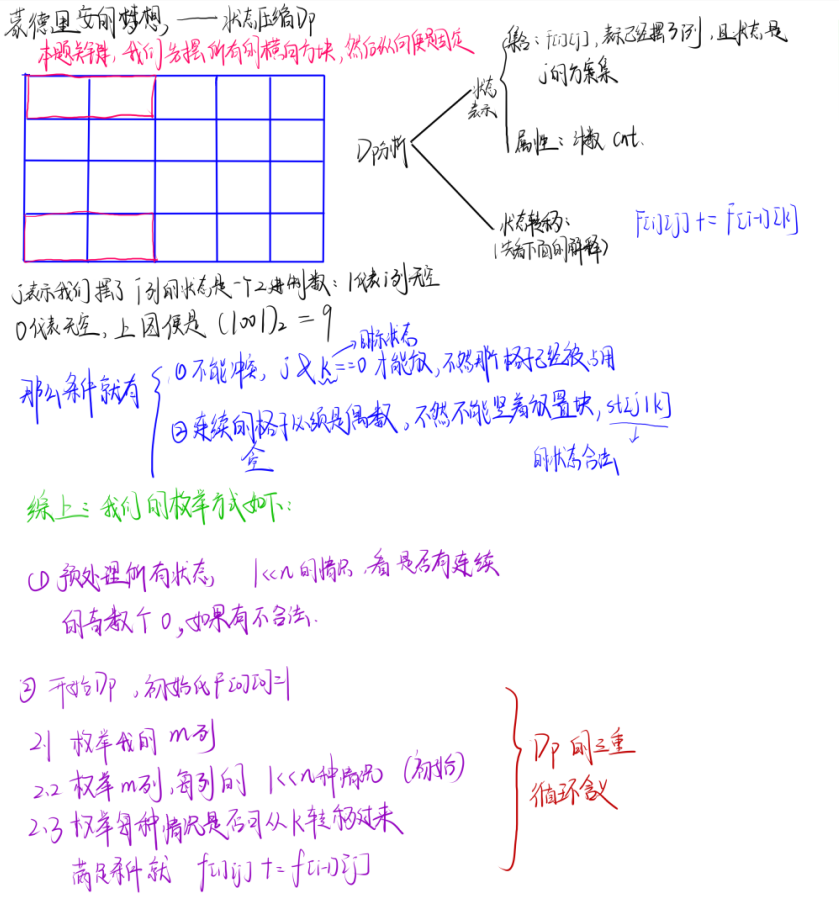 蒙德里安的梦想,——状态压缩Dp
本题关键,我们先摆所有的横向方块,然后纵向便是固定
Dp分析
状态表示
集合:f[i][j],表示已经摆了i列,且状态是
j的方案集
属性:计数 cnt.
状态转移:
(先看下面的解释)
F[i][j] += F[i-1][k]
j表示我们摆了i列的状态是一个2进制数:1代表i列无空
0代表无空,上图便是 (1001)₂ = 9
那么条件就有
①不能冲突, j & k == 0 才能放,不然那个格子已经被占用
目标状态
②连续的格子必须是偶数,不然不能竖着放置块,st[j|k]
空
的状态合法
综上:我们的枚举方式如下:
① 预处理所有状态, 1<<n 的情况,看是否有连续
的奇数个0,如果有不合法.
② 开始Dp,初始化F[0][0]=1
2.1 枚举我的 m列
2.2 枚举m列,每列的 1<<n种情况 (初始)
2.3 枚举每种情况是否可从k转移过来
满足条件就 f[i][j] += f[i-1][j]
Dp的三重
循环含义